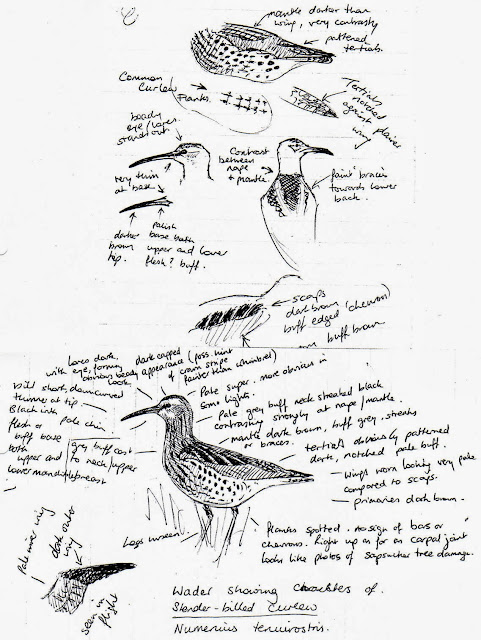 mantle darker than
wing, very contrasty
patterned
tertials.
Common
Curlew
Flanks.
Tertials
notched
against
plainer
wing
beady
eye/lores
stands out
very thin
at base
Contrast
between
nape
+ mantle.
faint braces
towards lower
back.
palish
darker base both
brown upper and lower
tip. flesh? buff.
scaps
dark brown
buff edged (chevrons)
buff brown
Lores dark,
with eye, forming
obvious beady
look.
dark capped
appearance (poss. hint
of crown stripe
fainter than whimbrel)
Pale super. more obvious in
some lights.
Bill short, downcurved
thinner at tip.
Black ink
flesh or
buff base
both
upper and
lower mandible
pale chin
grey buff cast
to neck/upper
breast
Pale grey buff neck streaked black
contrasting strongly at nape/mantle.
mantle dark brown, buff grey, streaks
or braces.
tertials obviously patterned
dark, notched pale buff.
wings worn looking very pale
compared to scaps.
primaries dark brown.
Flanks spotted. no sign of bars or
chevrons. Right up as far as carpal joint
looks like photos of sapsucker tree damage.
Legs unseen
Pale inner wing
dark outer
wing
seen in
flight
Wader showing characters of.
Slender-billed Curlew
Numenius tenuirostris.